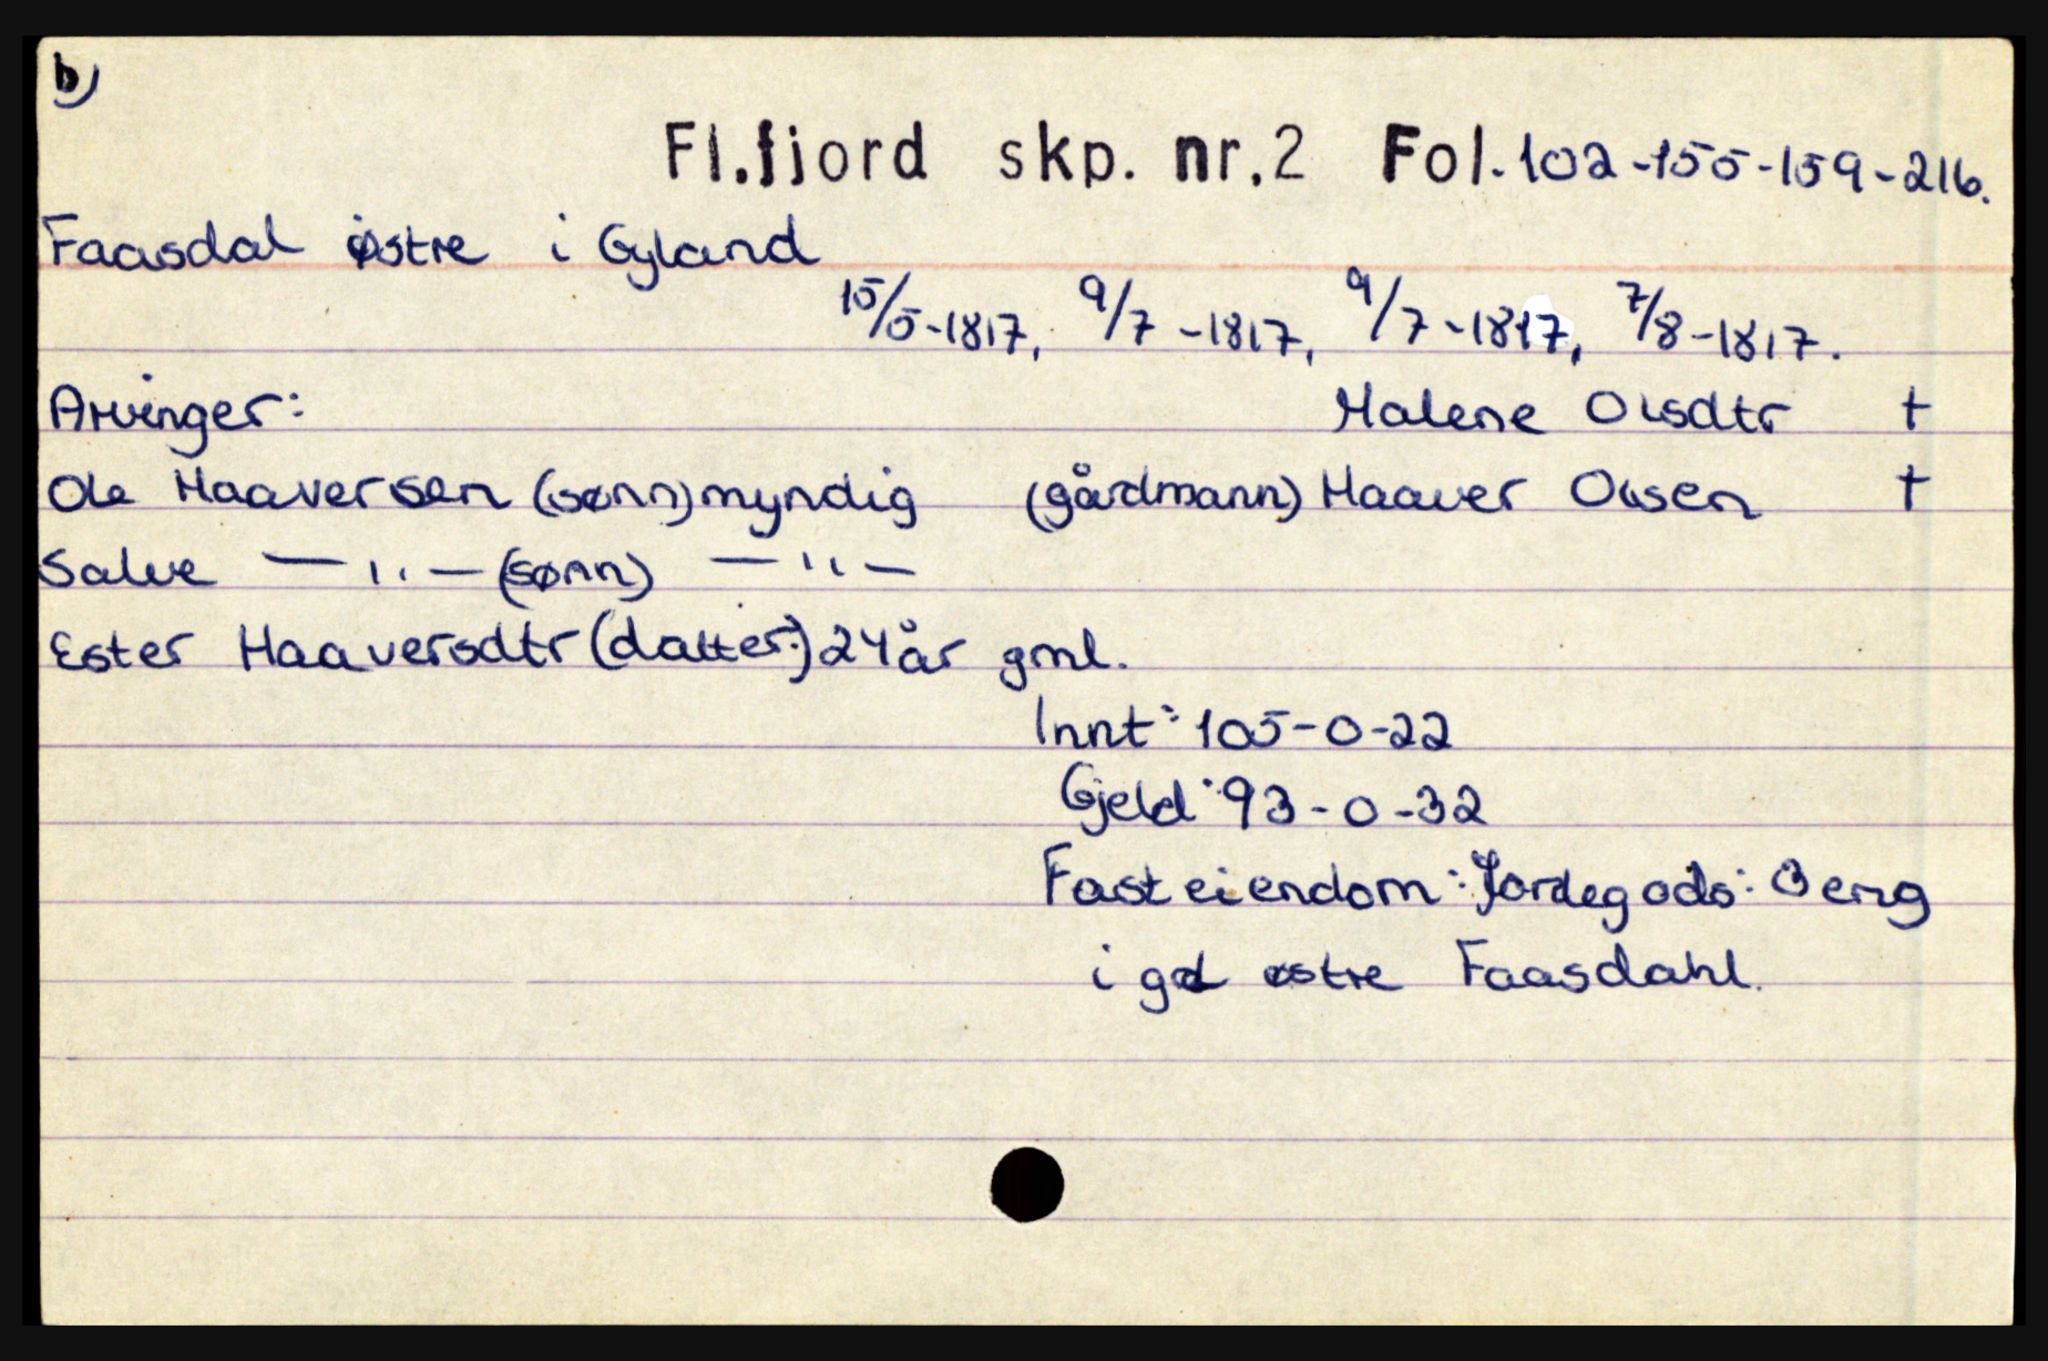 b)
Fl.fjord skp. nr.2 Fol.102-155-159-216.
Faasdal østre i Gyland
15/5-1817, 9/7-1817, 9/7-1817, 7/8-1817.
Arvinger: Malene Olsdtr †
Ole Haaversen (sønn) myndig (gårdmann) Haaver Olsen †
Salve —"— (sønn) —"—
Ester Haaversdtr (datter:) 24 år gml.
Innt: 105-0-22
Gjeld: 93-0-32
Fast eiendom: Jordegods: 3 eng
i gd østre Faasdahl.